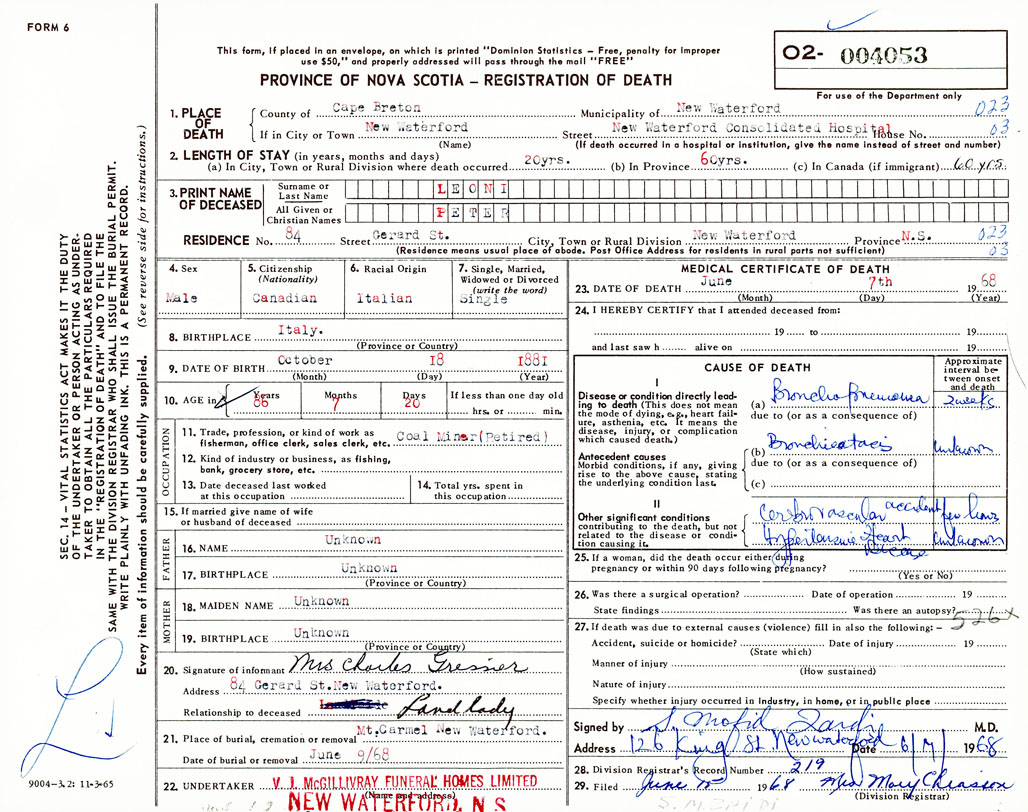 FORM 6
This form, if placed in an envelope, on which is printed "Dominion Statistics – Free, penalty for improper
use $50," and properly addressed will pass through the mail "FREE"
PROVINCE OF NOVA SCOTIA – REGISTRATION OF DEATH
02- 004053
For use of the Department only
1. PLACE OF DEATH
County of Cape Breton Municipality of New Waterford 023
If in City or Town New Waterford Street New Waterford Consolidated Hospital House No. 03
(Name) (If death occurred in a hospital or institution, give the name instead of street and number)
2. LENGTH OF STAY (in years, months and days)
(a) In City, Town or Rural Division where death occurred 20yrs. (b) In Province 60yrs. (c) In Canada (if immigrant) 60 yrs.
3. PRINT NAME OF DECEASED
Surname or Last Name LEONI
All Given or Christian Names PETER
RESIDENCE No. 84 Street Gerard St. City, Town or Rural Division New Waterford Province N.S. 023
(Residence means usual place of abode. Post Office Address for residents in rural parts not sufficient) 03
4. Sex
Male
5. Citizenship
(Nationality)
Canadian
6. Racial Origin
Italian
7. Single, Married,
Widowed or Divorced
(write the word)
Single
8. BIRTHPLACE Italy.
(Province or Country)
9. DATE OF BIRTH October 18 1881
(Month) (Day) (Year)
10. AGE in Years Months Days If less than one day old
86 7 20 hrs. or min.
OCCUPATION
11. Trade, profession, or kind of work as
fisherman, office clerk, sales clerk, etc. Coal Miner(Retired)
12. Kind of industry or business, as fishing,
bank, grocery store, etc.
13. Date deceased last worked
at this occupation
14. Total yrs. spent in
this occupation
15. If married give name of wife
or husband of deceased
FATHER
16. NAME Unknown
17. BIRTHPLACE Unknown
(Province or Country)
MOTHER
18. MAIDEN NAME Unknown
19. BIRTHPLACE Unknown
(Province or Country)
20. Signature of informant Mrs Charles Gresner
Address 84 Gerard St.New Waterford.
Relationship to deceased Landlady
21. Place of burial, cremation or removal Mt.Carmel New Waterford.
Date of burial or removal June 9/68
22. UNDERTAKER V. J. McGILLIVRAY FUNERAL HOMES LIMITED
(Name and address)
NEW WATERFORD, N S
MEDICAL CERTIFICATE OF DEATH
23. DATE OF DEATH June 7th 1968
(Month) (Day) (Year)
24. I HEREBY CERTIFY that I attended deceased from:
19 to 19
and last saw h alive on 19
CAUSE OF DEATH
Approximate
interval be-
tween onset
and death
I
Disease or condition directly lead-
ing to death (This does not mean
the mode of dying, e.g., heart fail-
ure, asthenia, etc. It means the
disease, injury, or complication
which caused death.)
(a) Broncho Pneumonia 2 weeks
due to (or as a consequence of)
Antecedent causes
Morbid conditions, if any, giving
rise to the above cause, stating
the underlying condition last.
(b) Bronchiectasis unknown
due to (or as a consequence of)
(c)
II
Other significant conditions
contributing to the death, but not
related to the disease or condi-
tion causing it.
Cerebrovascular accident few hours
Hypertensive Heart Disease unknown
25. If a woman, did the death occur either during
pregnancy or within 90 days following pregnancy?
(Yes or No)
26. Was there a surgical operation? Date of operation 19
State findings Was there an autopsy?
526x
27. If death was due to external causes (violence) fill in also the following: –
Accident, suicide or homicide? Date of injury 19
(State which)
Manner of injury
(How sustained)
Nature of injury
Specify whether injury occurred in Industry, in home, or in public place
Signed by S. Mofid M.D.
Address 126 King St. New waterford Date 6/7/ 1968
28. Division Registrar's Record Number 219
29. Filed June 1968 Mrs Mary Chiasson
(Division Registrar)
SEC. 14 – VITAL STATISTICS ACT MAKES IT THE DUTY
OF THE UNDERTAKER OR PERSON ACTING AS UNDER-
TAKER TO OBTAIN ALL THE PARTICULARS REQUIRED
IN THE "REGISTRATION OF DEATH" AND TO FILE THE
SAME WITH THE DIVISION REGISTRAR WHO SHALL ISSUE THE BURIAL PERMIT.
WRITE PLAINLY WITH UNFADING INK. THIS IS A PERMANENT RECORD.
Every item of information should be carefully supplied. (See reverse side for instructions.)
9004-3.2: 11-3-65